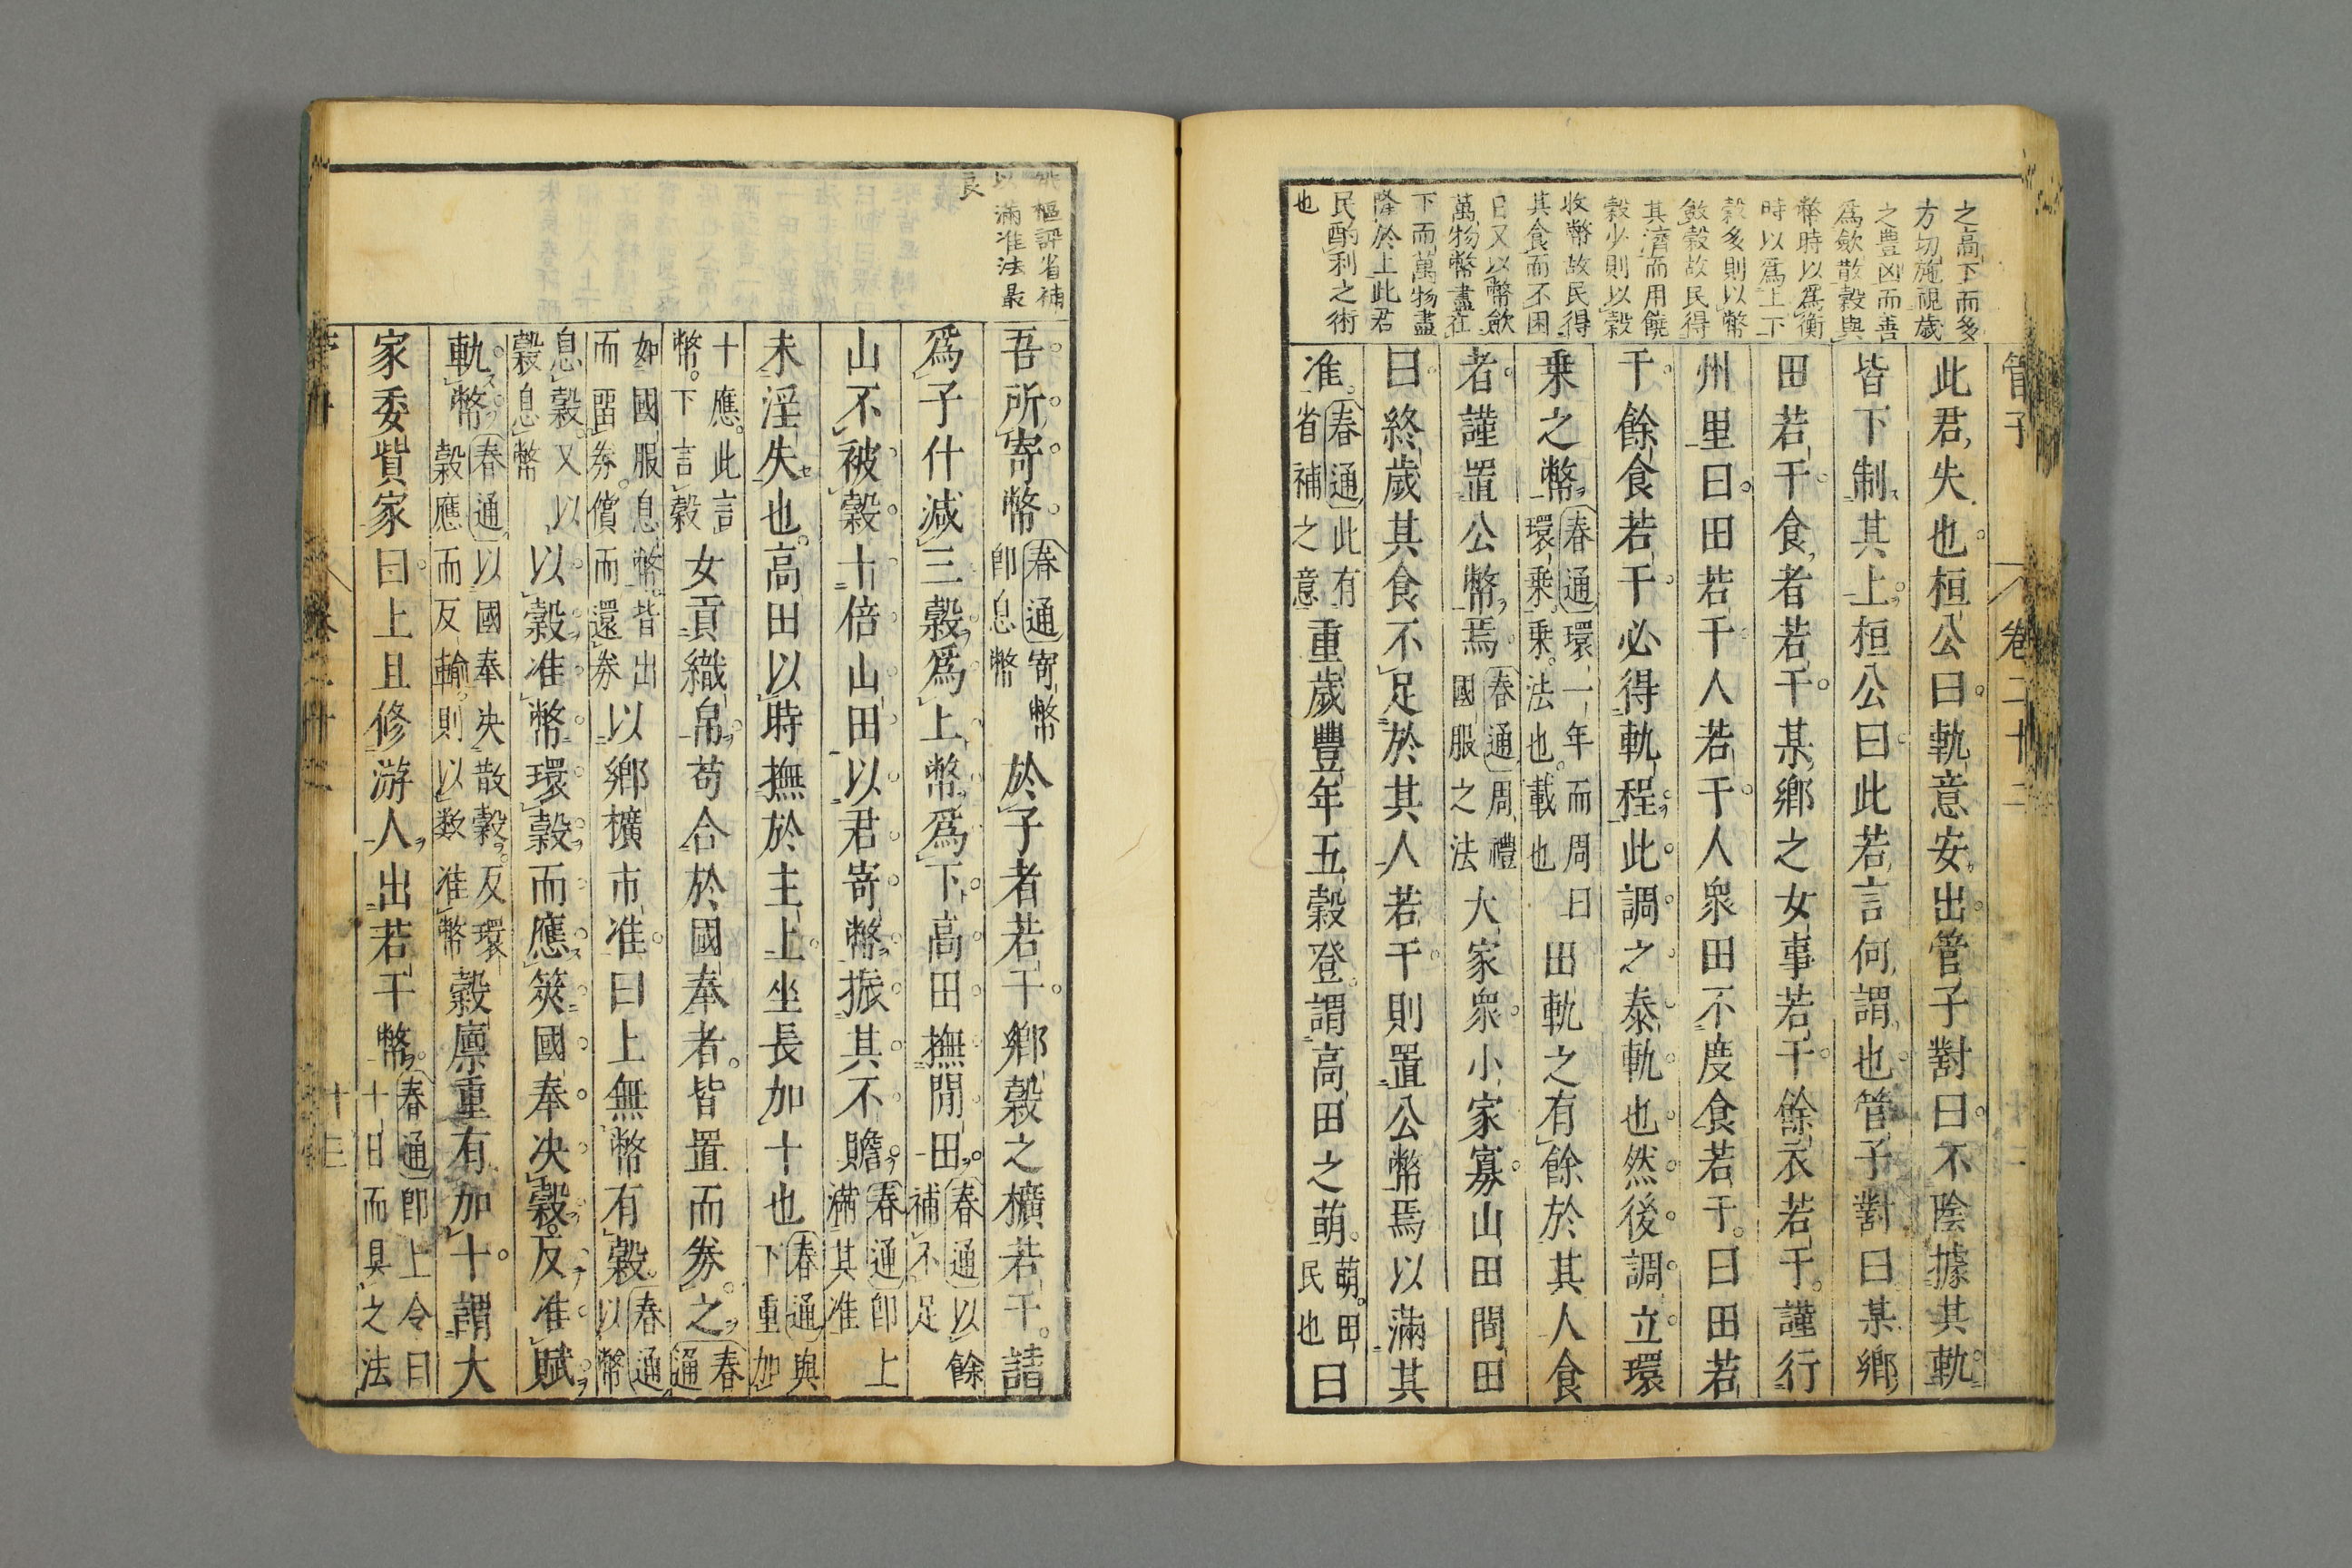 管子
卷二十二
之高下而多
方切施視歲
之豊凶而善
爲斂散穀與
幣時以爲衡
時以爲上下
穀多則以幣
斂穀故民得
其濟而用饒
穀少則以穀
收幣故民得
其食而不困
日又以幣斂
萬物幣盡在
下而萬物盡
降於上此君
民酌利之術
也
此君失也桓公曰軌意安出管子對曰不陰據其軌
皆下制其上桓公曰此若言何謂也管子對曰某鄉
田若干食者若干某鄉之女事若干餘衣若干謹行
州里曰田若干人若干人衆田不度食若干曰田若
干餘食若干必得軌程此調之泰軌也然後調立環
乘之幣春通環一年而周曰環乘乘法也載也田軌之有餘於其人食
者謹置公幣焉春通周禮國服之法大家衆小家寡山田間田
曰終歲其食不足於其人若干則置公幣焉以滿其
准春通此有省補之意重歲豐年五穀登謂高田之萌萌田民也曰
樞評省補
以滿准法最
良
吾所寄幣春通寄幣卽息幣於子者若干鄉穀之櫎若干請
爲子什减三穀爲上幣爲下高田撫閒田春通以餘補不足
山不被穀十倍山田以君寄幣振其不贍春通卽上滿其准
未淫失也高田以時撫於主上坐長加十也春通與下重加
十應此言幣下言穀女貢織帛苟合於國奉者皆置而劵之春通
如國服息幣皆出而畱劵償而還劵以鄉櫎市准曰上無幣有穀春通以幣
息穀又以穀息幣以穀准幣環穀而應筴國奉决穀反准賦
軌幣春通以國奉决散穀反環穀應而反輸則以数准幣穀廪重有加十謂大
家委貲家曰上且修游人出若干幣春通卽上令曰十日而具之法
十三